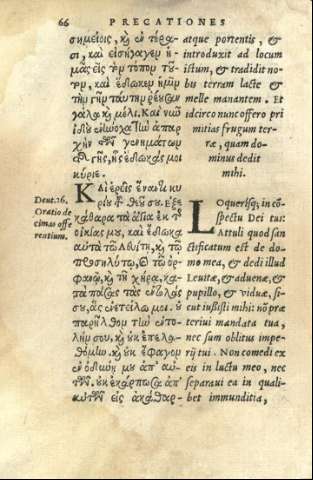 66 PRECATIONES
σημείοις, κ̀ ἐν τέρα-
σι, καὶ εἰσήγαγεν ἡ-
μᾶς εἰς τὸν τόπον τοῦ-
τον, καὶ ἔδωκεν ἡμῖν
τὴν γῆν ταύτην ῥέουσαν
γάλα κ̀ μέλι. Καὶ νῦν
ἰδοὺ ἐνήνοχα τὴν ἀπαρ-
χὴν τῶν γεννημάτων
τῆς γῆς, ἧς ἔδωκάς μοι
κύριε.
atque portentis, &
introduxit ad locum
istum, & tradidit no-
bis terram lacte &
melle manantem. Et
idcirco nunc offero pri
mitias frugum ter-
ræ, quam do-
minus dedit
mihi.
Deut. 26.
Oratio de
cimas offe
rentium.
ΚΑὶ ἐρεῖς ἔναντι κυ-
ρίου τοῦ θεοῦ σου. Ἐξε
κάθαρα τὰ ἅγια ἐκ τ῀
οἰκίας μου, καὶ ἔδωκα
αὐτὰ τῷ λευίτῃ, κ̀ τῷ
προσηλύτῳ, κ̀ τῷ ὀρ-
φανῷ, κ̀ τῇ χήρᾳ, κα-
τὰ πάσας τὰς ἐντολάς
σου, ἃς ἐνετείλω μοι. οὐ
παρῆλθον τὴν ἐντο-
λήν σου, κ̀ οὐκ ἐπελα-
θόμην. κ̀ οὐκ ἔφαγον
ἐν ὀδύνῃ μου ἀπ' αὐ-
τῶν. οὐκ ἐκάρπωσα ἀπ'
αὐτῶν εἰς ἀκάθαρ-
LOquerisq; in cō-
spectu Dei tui:
Attuli quod san-
ctificatum est de do-
mo mea, & dedi illud
Leuitæ, & aduenæ, &
pupillo, & viduæ, si-
cut iussisti mihi: nō præ
teriui mandata tua,
nec sum oblitus impe-
rij tui. Non comedi ex
eis in luctu meo, nec
separaui ea in quali-
bet immunditia,